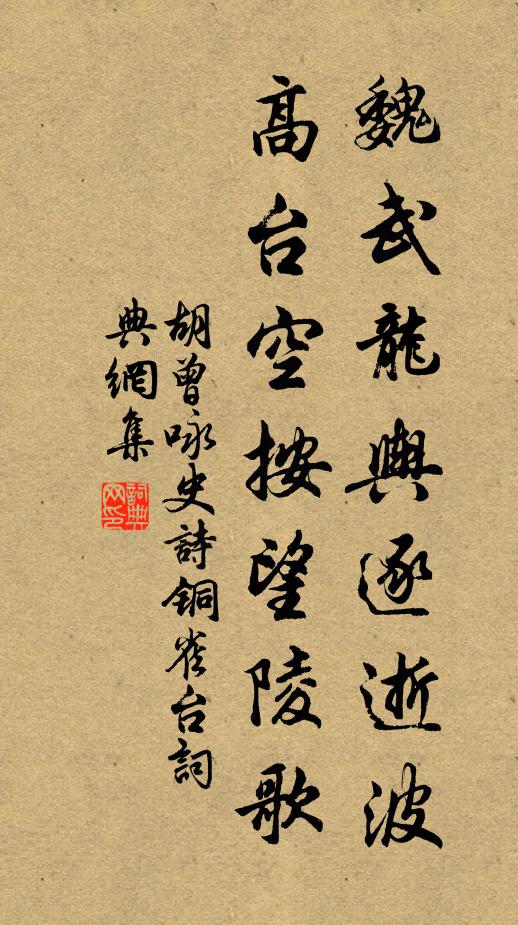 魏武龍輿逐逝波
髙台空按望陵歌
胡曾咏史詩銅雀台詞
典網集
詞典
网印